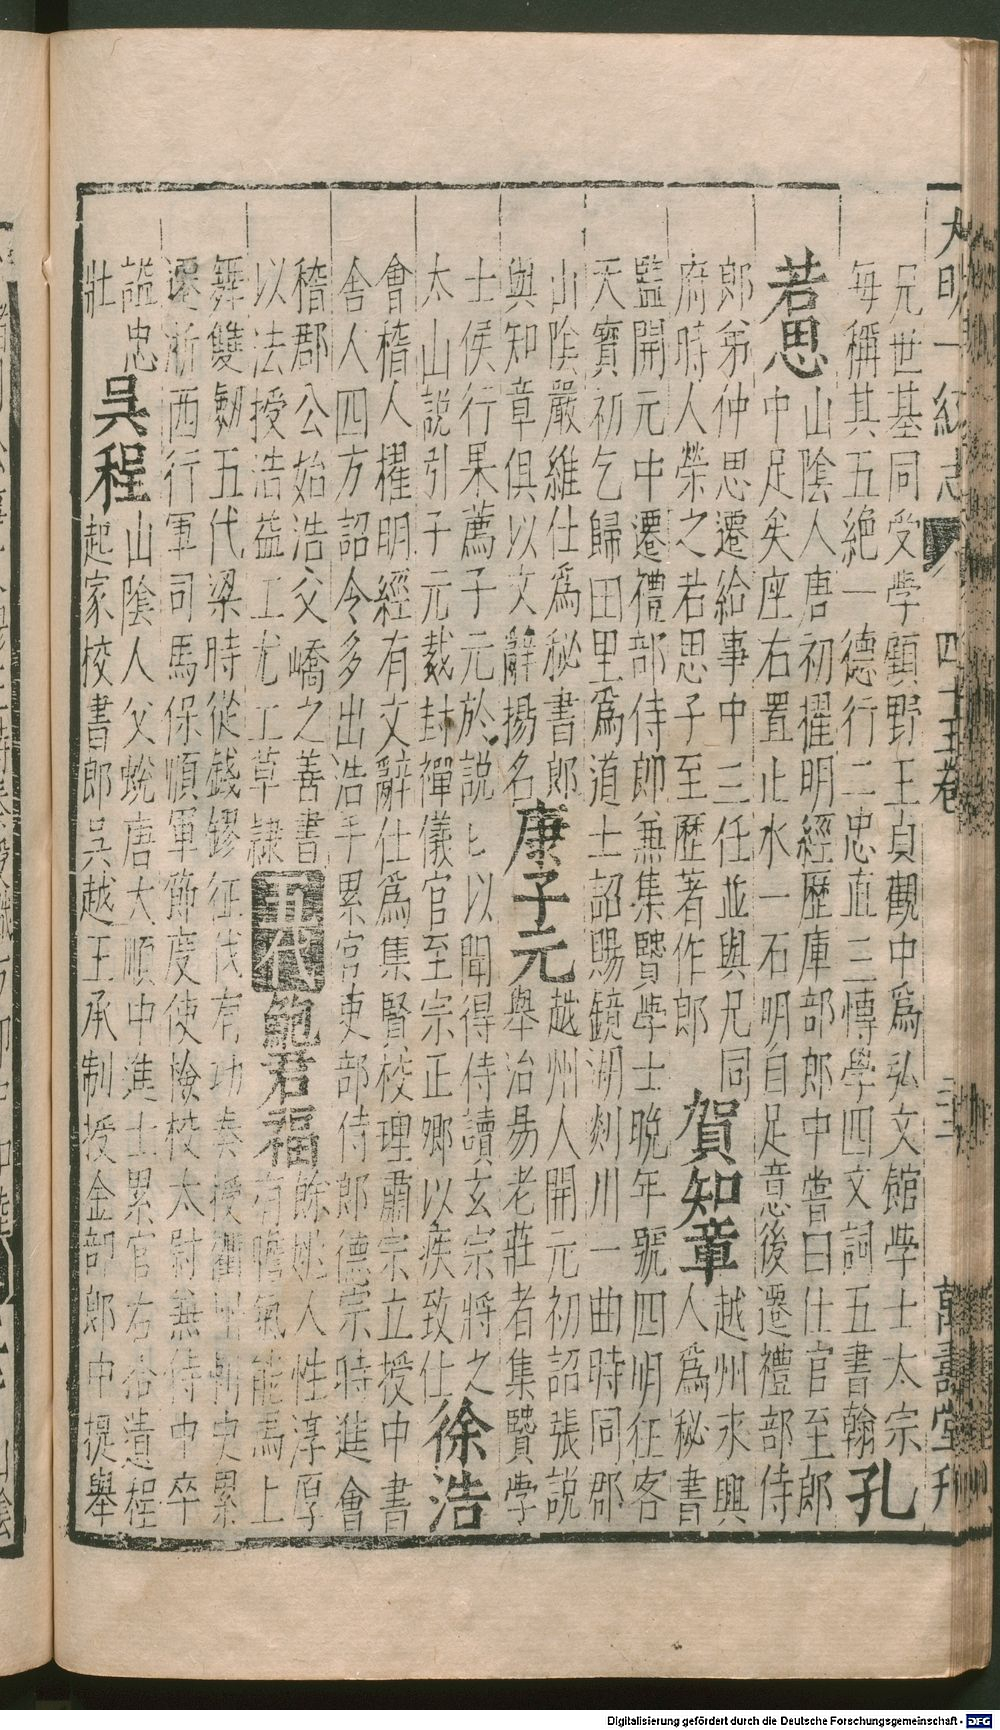 大明一統志 四十五卷 三 萬壽堂刊
兄世基同受學顧野王貞觀中爲弘文館學士太宗
每稱其五絶一德行二忠直三博學四文詞五書翰孔
若思
山陰人唐初擢明經歷庫部郎中嘗曰仕官至郎
中足矣座右置止水一石明自足意後遷禮部侍
郎弟仲思遷給事中三任並與兄同賀知章越州永興
府時人榮之若思子至歷著作郎
人爲秘書
監開元中遷禮部侍郎兼集賢學士晩年號四明狂客
天寶初乞歸田里爲道士詔賜鏡湖剡川一曲時同郡
山陰嚴維仕爲秘書郎
與知章俱以文辭揚名
康子元
越州人開元初詔張説
舉治易老莊者集賢學
士侯行果薦子元於説匕以聞得侍讀玄宗將之
太山説引子元裁封禪儀官至宗正卿以疾致仕
徐浩
會稽人擢明經有文辭仕爲集賢校理肅宗立授中書
舎人四方詔令多出浩手累官吏部侍郎德宗時進會
稽郡公始浩父嶠之善書
以法授浩益工尤工草隷
五代
鮑君福
餘姚人性淳厚
有膽氣能馬上
舞雙劒五代梁時從錢鏐征伐有功奏授衢州刺史累
遷浙西行軍司馬保順軍節度使檢校太尉兼侍中卒
諡忠
壯
吳程
山陰人父蛻唐大順中進士累官右拾遺程
起家校書郎吳越王承制授金部郎中提舉
Digitalisierung gefördert durch die Deutsche Forschungsgemeinschaft - DFG